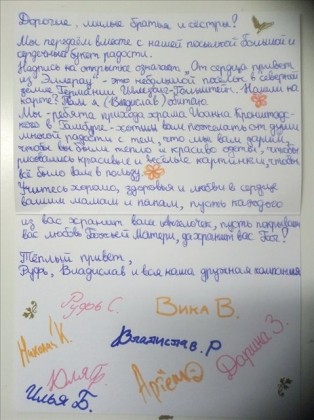 Дорогие, милые братья и сёстры!
Мы передаём вместе с нашей посылкой большой и
сердечный букет радости.
Надпись на открытке означает „От сердца привет
из Эллерау" - это небольшой посёлок в северной
земле Германии Шлезвиг-Гольштейн. Нашли на
карте? Там я (Владислав) обитаю.
Мы - ребята прихода храма Иоанна Кронштадт-
ского в Гамбурге - хотим вам пожелать от души
много радости с тем, что мы вам дарим,
чтобы вы были тепло и красиво одеты, чтобы
рисовались красивые и весёлые картинки, чтобы
всё было вам в пользу.
Учитесь хорошо, здоровья и любви в сердце
вашим мамам и папам, пусть каждого
из вас хранит ваш ангелочек, пусть покрывает
вас любовь Божьей Матери, да хранит вас Бог!
Тёплый привет,
Рудь, Владислав и вся наша дружная компания
Рудь С.
Вика В.
Николай К.
Владислав. Р
Юля Б.
Артём
Дарина З.
Илья Б.